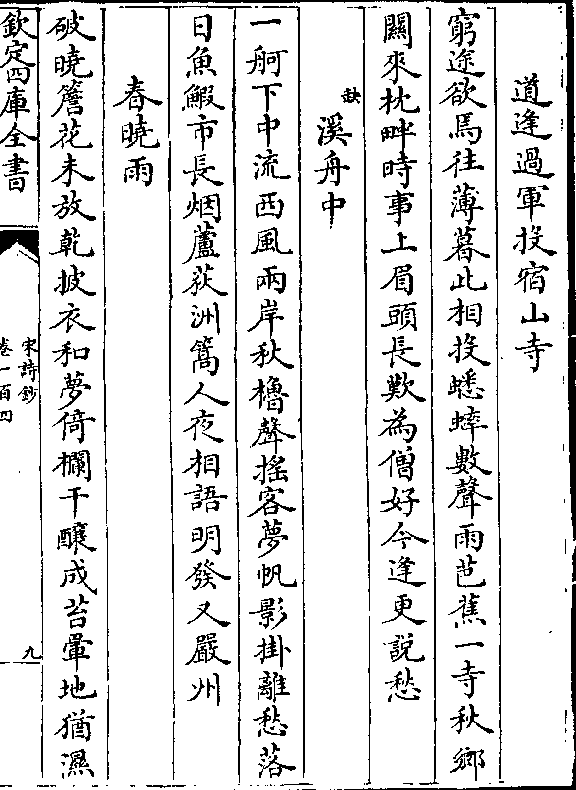 道逢過軍投宿山寺
窮途欲馬往薄暮此相投蟋蟀數聲雨芭蕉一寺秋鄉
關來枕畔時事上眉頭長歎為僧好今逢更說愁
缺溪舟中
一舸下中流西風兩岸秋櫓聲揺客夢帆影掛離愁落
日魚鰕市長烟蘆荻洲篙人夜相語明發又嚴州
春曉雨
破曉簷花未放乾披衣和夢倚欄干釀成苔暈地猶濕
欽定四庫全書
宋詩鈔
卷一百四
九